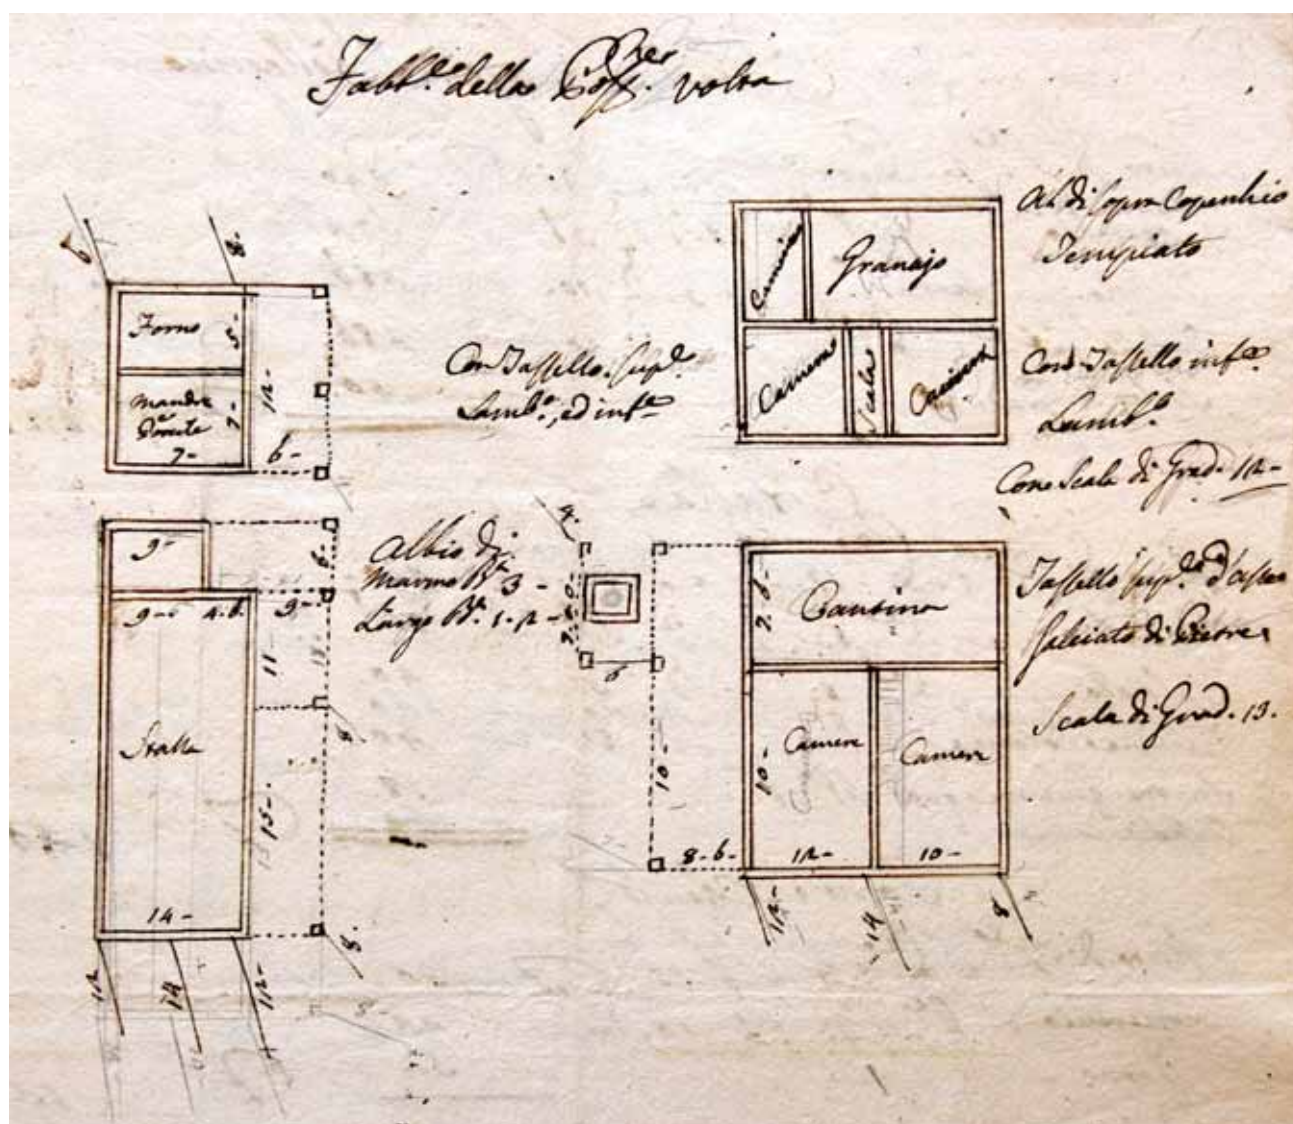 Fabb.e della Poss.ne volta
6
8-
Forno
5-
Mandre
e
Porcile
7-
7-
12-
6-
Con Tassello. sup.e
Lamb.o, ed inf.e
Camera
Granajo
Camera
Scala
Camera
Al di sopra Copenhio
Tempiato
Con Tassello inf.e
Lamb.o
Con Scala di Grad. 12-
9-
6-
9-
4-6.
9-
11-
Stalla
15-
14-
12
14
12-
8-
Albio di
Marmo B.a 3-
Largo B.a 1.2-
4.
6
10-
8-6-
Cantina
7-6-
Camera
Camera
10-
12-
10-
12-
14
8
Tassello sup.e d'asse
Salciato di Pietre
Scala di Grad. 13.